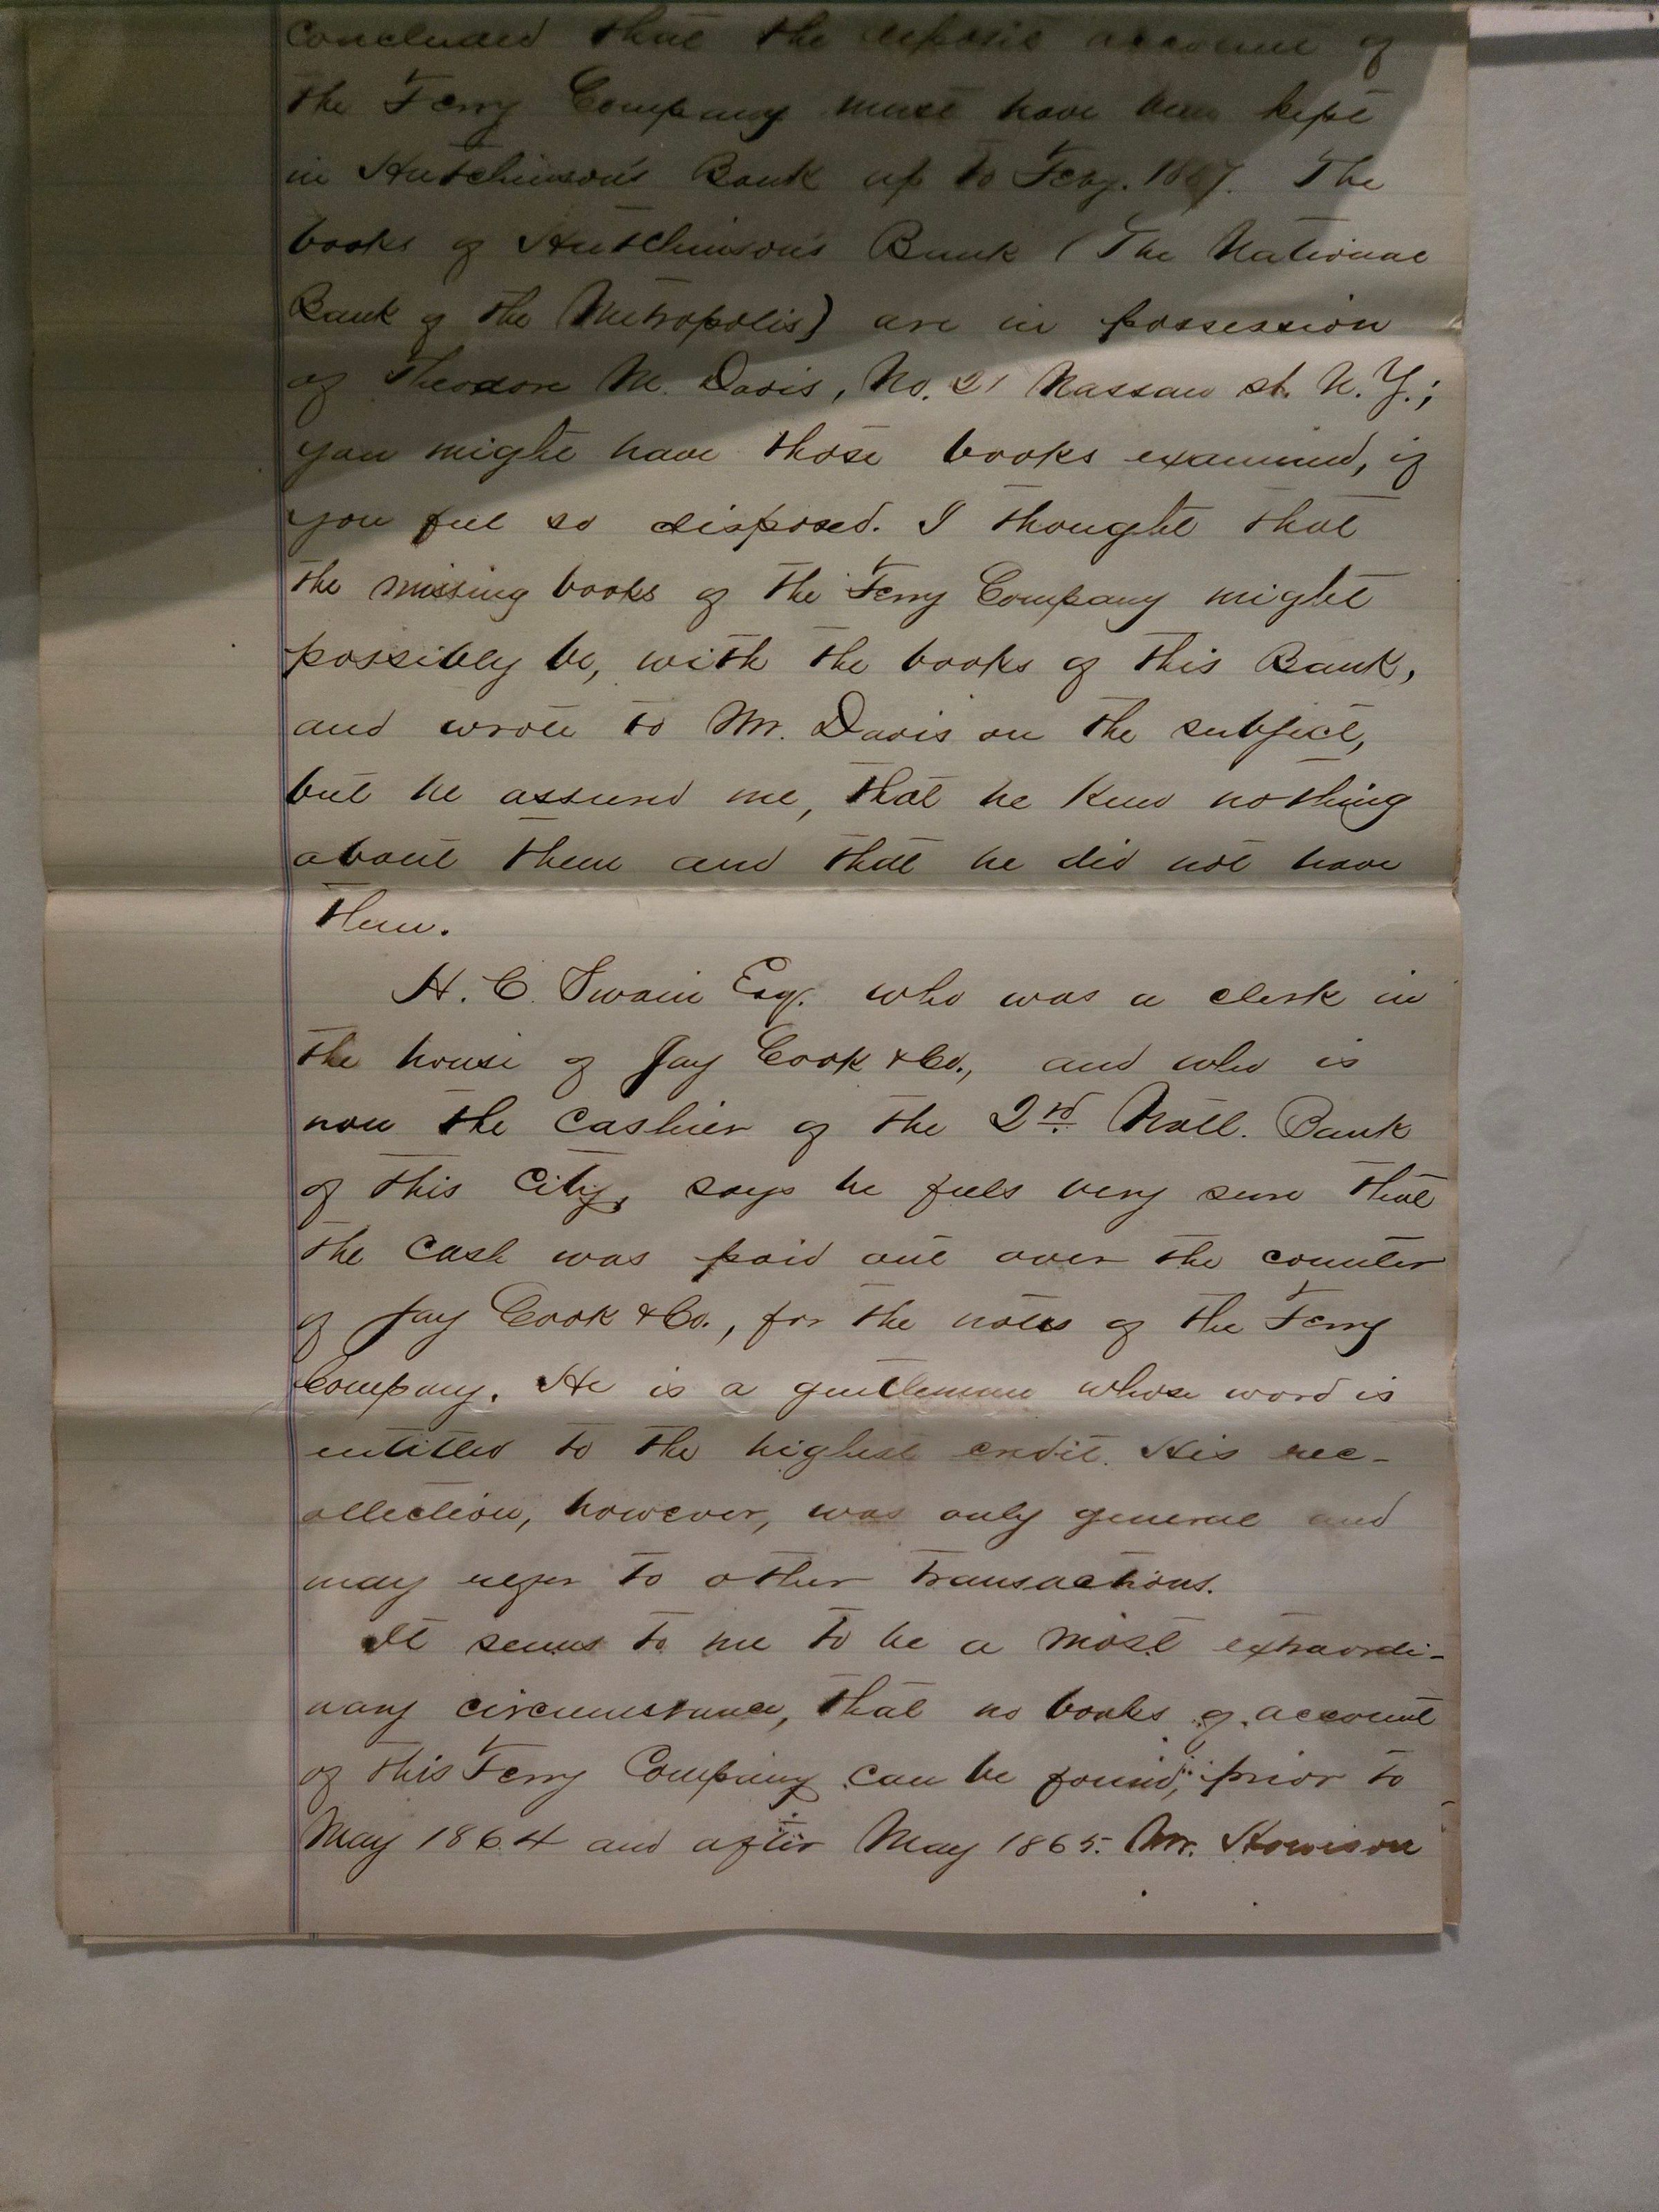 concluded that the deposit account of
the Ferry Company must have been kept
in Hutchinson's Bank up to Feby. 1867. The
books of Hutchinson's Bank (The National
Bank of the Metropolis) are in possession
of Theodore M. Davis, No. 21 Nassau st. N.Y.;
you might have those books examined, if
you feel so disposed. I thought that
the missing books of the Ferry Company might
possibly be, with the books of this Bank,
and wrote to Mr. Davis on the subject,
but he assured me, that he knew nothing
about them and that he did not have
them.
H. C. Swain Esq. who was a clerk in
the house of Jay Cook & Co., and who is
now the cashier of the 2nd Natl. Bank
of this City, says he feels very sure that
the cash was paid out over the counter
of Jay Cook & Co., for the notes of the Ferry
Company. He is a gentleman whose word is
entitled to the highest credit. His rec-
ollection, however, was only general and
may refer to other transactions.
It seems to me to be a most extraordi-
nary circumstance, that no books of account
of this Ferry Company can be found, prior to
May 1864 and after May 1865. Mr. Howison